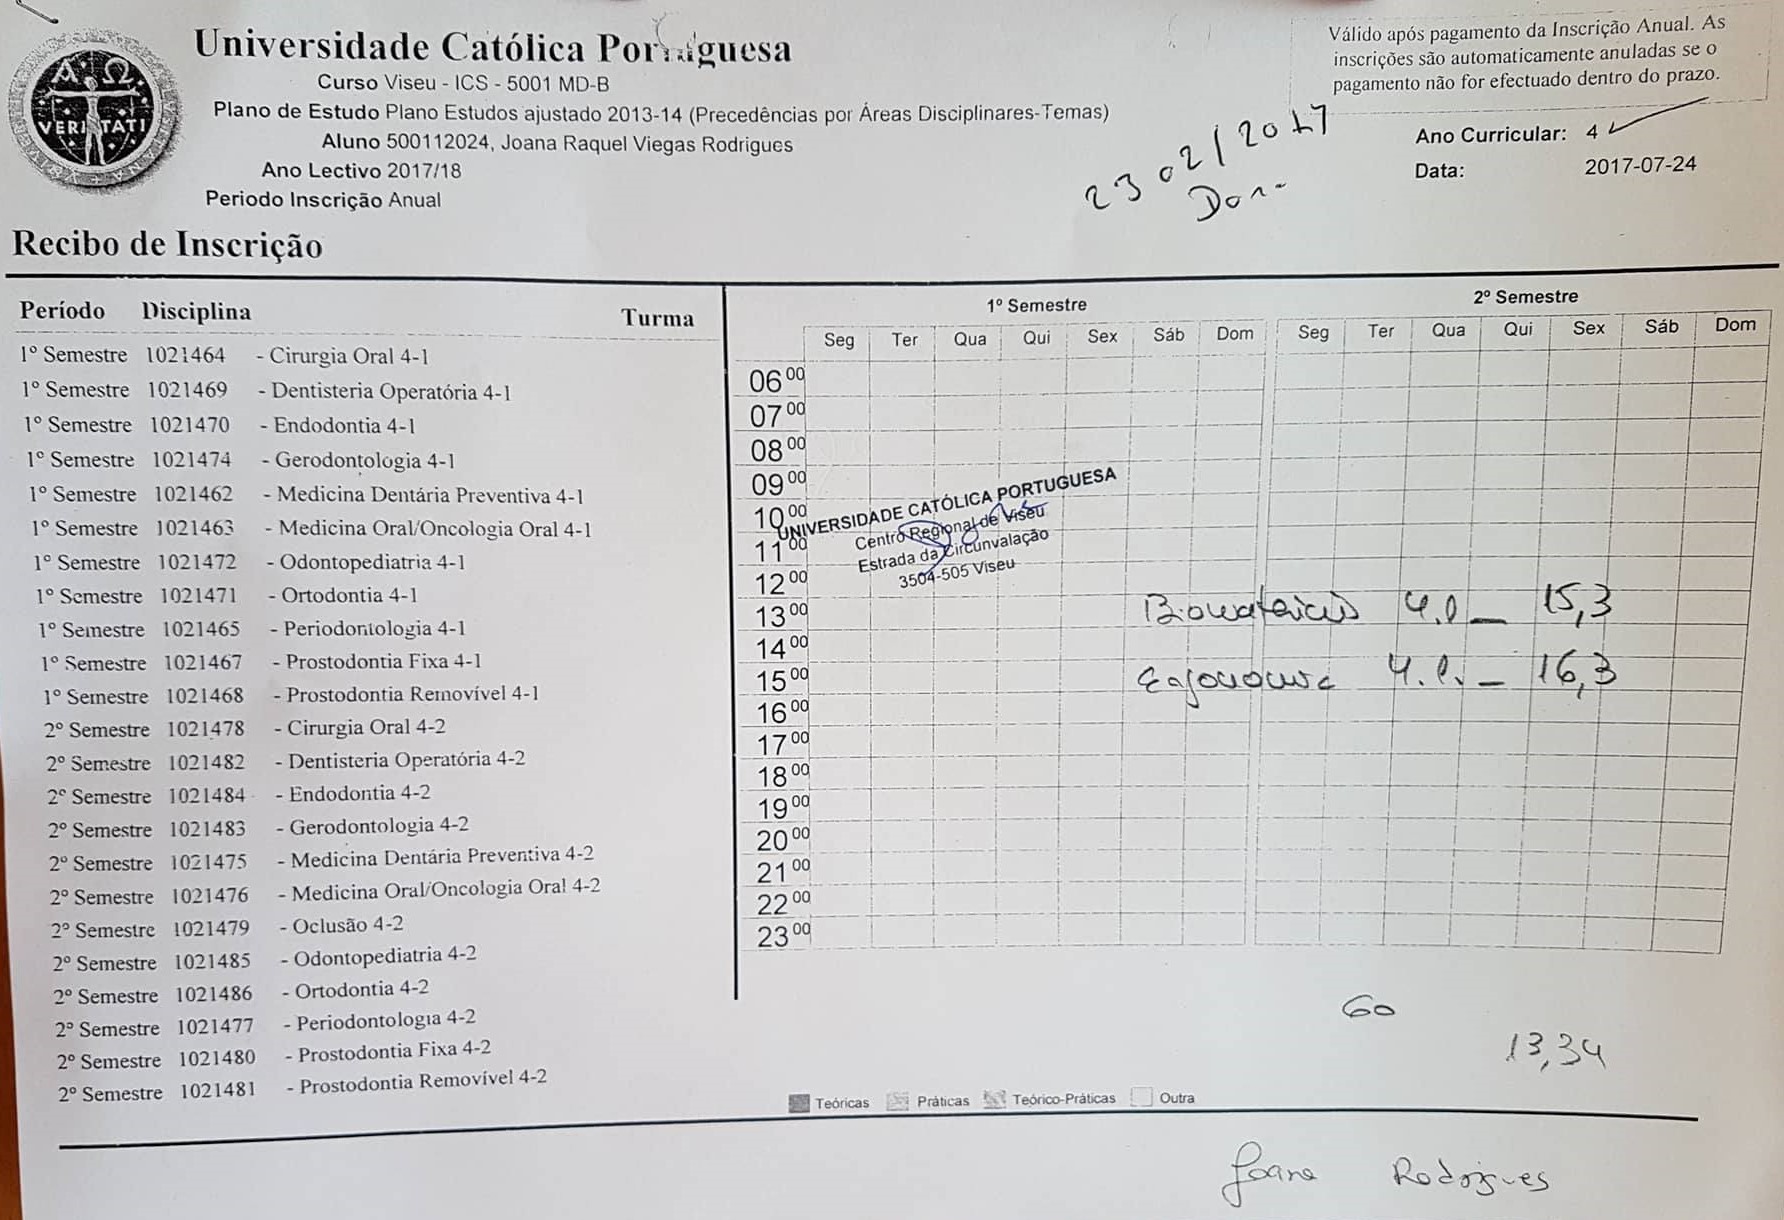 Universidade Católica Portuguesa
Curso Viseu - ICS - 5001 MD-B
Plano de Estudo Plano Estudos ajustado 2013-14 (Precedências por Áreas Disciplinares-Temas)
Aluno 500112024, Joana Raquel Viegas Rodrigues
Ano Lectivo 2017/18
Periodo Inscrição Anual
Válido após pagamento da Inscrição Anual. As
inscrições são automaticamente anuladas se o
pagamento não for efectuado dentro do prazo.
Ano Curricular: 4
Data: 2017-07-24
23 02/2017
VERITATI
Recibo de Inscrição
Período Disciplina Turma
1º Semestre 1021464 - Cirurgia Oral 4-1
1º Semestre 1021469 - Dentisteria Operatória 4-1
1º Semestre 1021470 - Endodontia 4-1
1º Semestre 1021474 - Gerodontologia 4-1
1º Semestre 1021462 - Medicina Dentária Preventiva 4-1
1º Semestre 1021463 - Medicina Oral/Oncologia Oral 4-1
1º Semestre 1021472 - Odontopediatria 4-1
1º Semestre 1021471 - Ortodontia 4-1
1º Semestre 1021465 - Periodontologia 4-1
1º Semestre 1021467 - Prostodontia Fixa 4-1
1º Semestre 1021468 - Prostodontia Removível 4-1
2º Semestre 1021478 - Cirurgia Oral 4-2
2º Semestre 1021482 - Dentisteria Operatória 4-2
2º Semestre 1021484 - Endodontia 4-2
2º Semestre 1021483 - Gerodontologia 4-2
2º Semestre 1021475 - Medicina Dentária Preventiva 4-2
2º Semestre 1021476 - Medicina Oral/Oncologia Oral 4-2
2º Semestre 1021479 - Oclusão 4-2
2º Semestre 1021485 - Odontopediatria 4-2
2º Semestre 1021486 - Ortodontia 4-2
2º Semestre 1021477 - Periodontologia 4-2
2º Semestre 1021480 - Prostodontia Fixa 4-2
2º Semestre 1021481 - Prostodontia Removível 4-2
1º Semestre 2º Semestre
Seg Ter Qua Qui Sex Sáb Dom Seg Ter Qua Qui Sex Sáb Dom
06 00
07 00
08 00
09 00
10 00
11 00
12 00
13 00
14 00
15 00
16 00
17 00
18 00
19 00
20 00
21 00
22 00
23 00
UNIVERSIDADE CATÓLICA PORTUGUESA
Centro Regional de Viseu
Estrada da Circunvalação
3504-505 Viseu
15,3
16,3
60
13,34
Teóricas Práticas Teórico-Práticas Outra
Joana Rodrigues